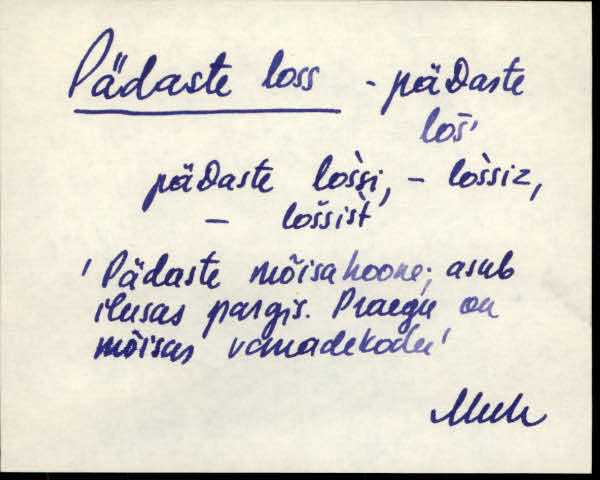 Pädaste loss - päDaste
loš'
päDaste lošsi, - lošsiz,
- lošsist
'Pädaste mõisahoone; asub
ilusas pargis. Praegu on
mõisas vanadekodu'
Muh